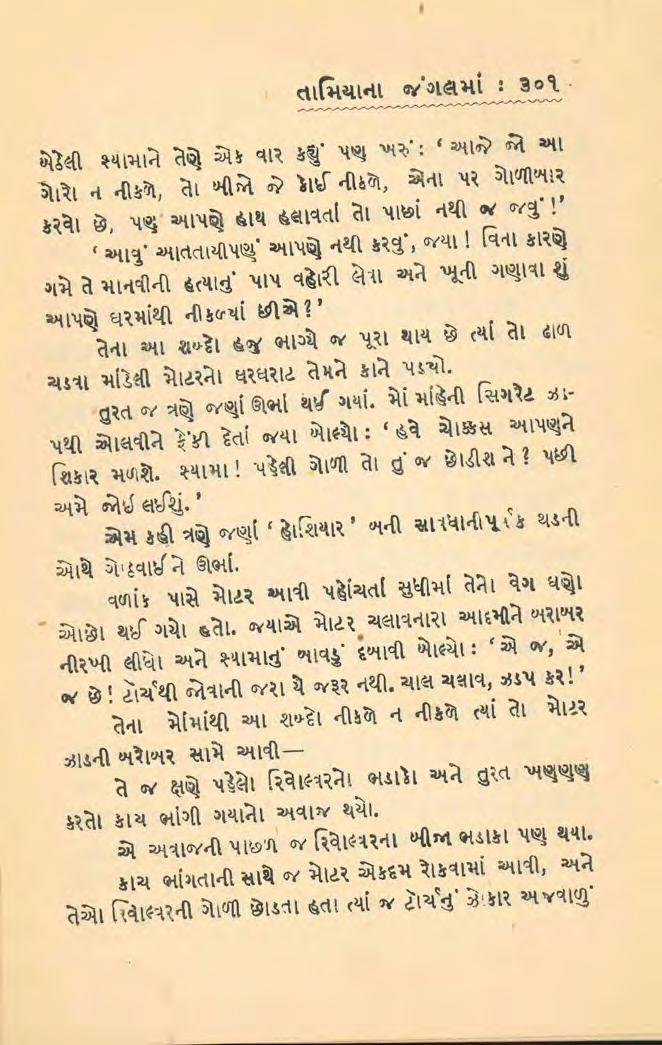 તામિયાના જંગલમાં : ૩૦૧
બેઠેલી શ્યામાને તેણે એક વાર કહ્યું પણ ખરું: ‘આજે જો આ
ગોરો ન નીકળે, તો બીજો જે કોઈ નીકળે, એના પર ગોળીબાર
કરવો છે, પણ આપણે હાથ હલાવતાં તો પાછાં નથી જ જવું!’
‘આવું આતતાયીપણું આપણે નથી કરવું, જયા! વિના કારણે
ગમે તે માનવીની હત્યાનું પાપ વહોરી લેવા અને ખૂની ગણાવા શું
આપણે ઘરમાંથી નીકળ્યાં છીએ?’
તેના આ શબ્દો હજુ ભાગ્યે જ પૂરા થાય છે ત્યાં તો ઢાળ
ચડવા માંડેલી મોટરનો ઘરઘરાટ તેમને કાને પડ્યો.
તુરત જ ત્રણે જણાં ઊભાં થઈ ગયાં. મોં માંહેની સિગરેટ ઝડ-
પથી ઓલવીને ફેંકી દેતાં જયા બોલ્યો: ‘હવે ચોક્કસ આપણને
શિકાર મળશે. શ્યામા! પહેલી ગોળી તો તું જ છોડીશ ને? પછી
અમે જોઈ લઈશું.’
એમ કહી ત્રણે જણાં ‘હોશિયાર’ બની સાવધાનીપૂર્વક થડની
ઓથે ગોઠવાઈ ને ઊભાં.
વળાંક પાસે મોટર આવી પહોંચતાં સુધીમાં તેનો વેગ ઘણો
ઓછો થઈ ગયો હતો. જયાએ મોટર ચલાવનારા આદમીને બરાબર
નીરખી લીધો અને શ્યામાનું બાવડું દબાવી બોલ્યો: ‘એ જ, એ
જ છે! ટોર્ચથી જોવાની જરા યે જરૂર નથી. ચાલ ચલાવ, ઝડપ કર!’
તેના મોંમાંથી આ શબ્દો નીકળે ન નીકળે ત્યાં તો મોટર
ઝાડની બરોબર સામે આવી—
તે જ ક્ષણે પહેલો રિવોલ્વરનો ભડાકો અને તુરત ખણણણ
કરતો કાચ ભાંગી ગયાનો અવાજ થયો.
એ અવાજની પાછળ જ રિવોલ્વરના બીજા ભડાકા પણ થયા.
કાચ ભાંગતાની સાથે જ મોટર એકદમ રોકવામાં આવી, અને
તેઓ રિવોલ્વરની ગોળી છોડતા હતા ત્યાં જ ટોર્ચનું ઝોકાર અજવાળું